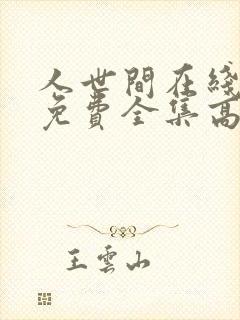 人世間在綫
免費全集高
王雲山